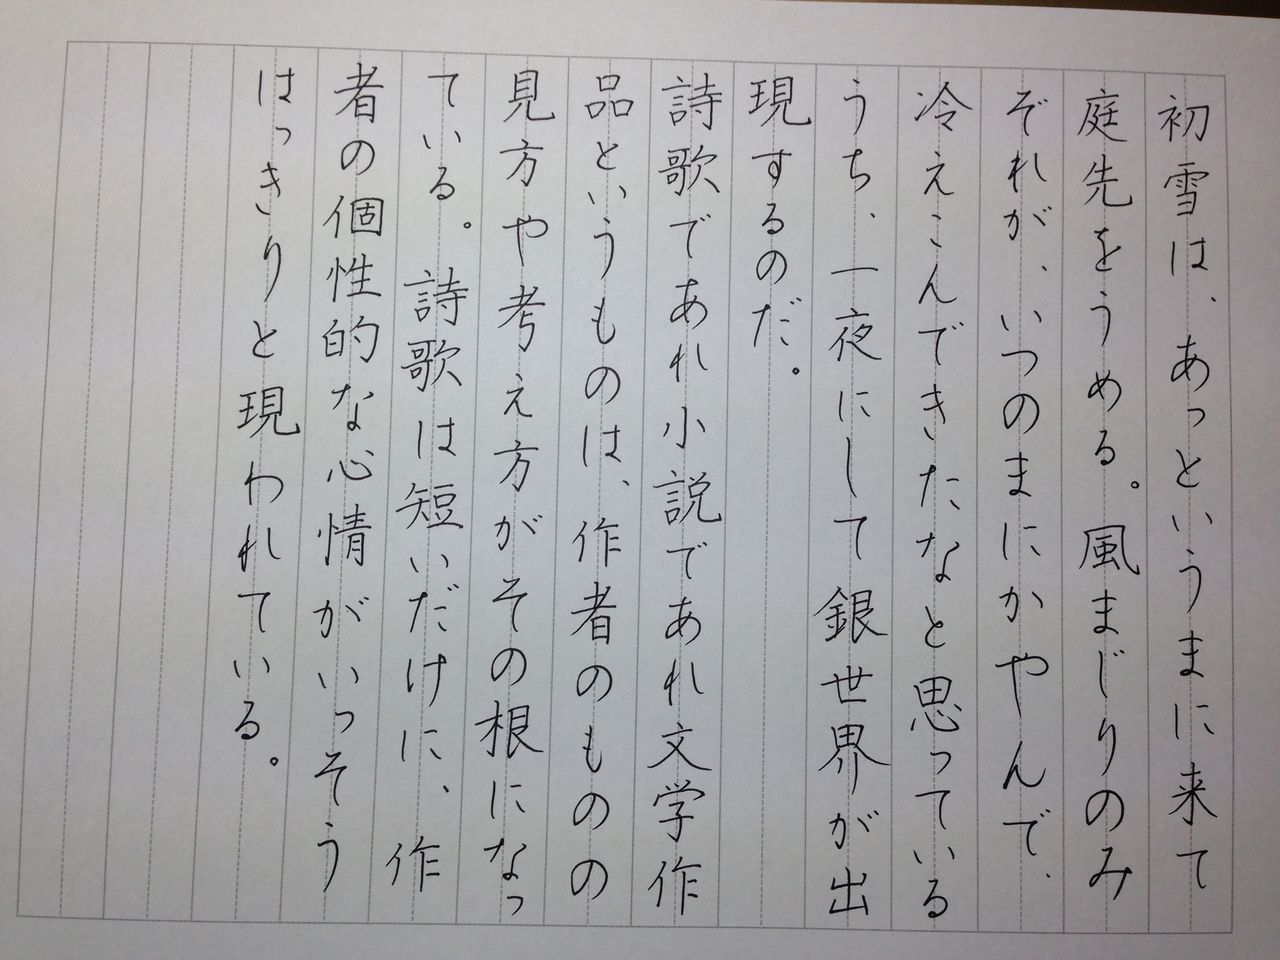 初雪は、あっというまに来て
庭先をうめる。風まじりのみ
ぞれが、いつのまにかやんで、
冷えこんできたなと思っている
うち、一夜にして銀世界が出
現するのだ。
詩歌であれ小説であれ文学作
品というものは、作者のものの
見方や考え方がその根になっ
ている。詩歌は短いだけに、作
者の個性的な心情がいっそう
はっきりと現われている。